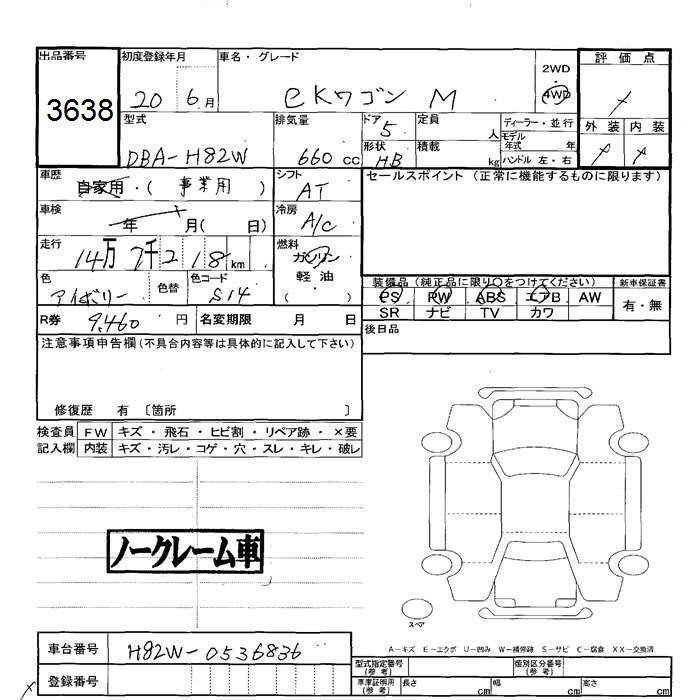 出品番号 初度登録年月 車名・グレード 2WD 評価点
3638 20 6月 eKワゴン M 4WD
型式 排気量 ドア 5 定員 人 ディーラー・並行 外装 内装
モデル年式 年
DBA-H82W 660 cc 形状 HB 積載 kg ハンドル 左・右
車歴 自家用・(事業用) シフト AT セールスポイント(正常に機能するものに限ります)
車検 年 月( 日) 冷房 A/C
走行 14万 7千2 18 km 燃料 ガソリン
軽油
( )
色 アイボリー 色替 色コード S14
装備品(純正品に限り○をつけてください) 新車保証書
PS PW ABS エアB AW 有・無
SR ナビ TV カワ
R券 9,460 円 名変期限 月 日 後日品
注意事項申告欄(不具合内容等は具体的に記入して下さい)
修復歴 有 [箇所 ]
検査員 FW キズ・飛石・ヒビ割・リペア跡・×要
記入欄 内装 キズ・汚レ・コゲ・穴・スレ・キレ・破レ
ノークレーム車
スペア
A-キズ E-エクボ U-凹み W-補修跡 S-サビ C-腐食 XX-交換済
車台番号 H82W-0536836
型式指定番号(参考) 類別区分番号(参考)
登録番号
車庫証明用(参考) 長さ cm 幅 cm 高さ cm